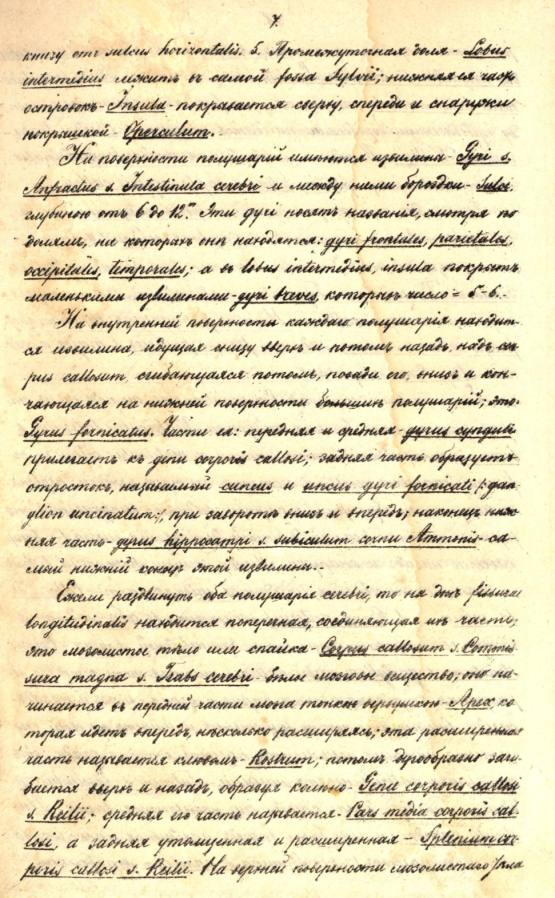 7.
книзу отъ sulcus horizontalis. 5. Промежуточная доля - Lobus
intermedius лежитъ въ самой fossa Sylvii; нижняя ея часть
островокъ - Insula - покрывается сверху, спереди и снаружи
покрышкой - Operculum.
На поверхности полушарій имѣются извилины - Gyri s.
Anfractus s. Intestinula cerebri и между ними бороздки - Sulci,
глубиною отъ 6 до 12'''. Эти дуги носятъ названія, смотря по
долямъ, на которыхъ онѣ находятся: gyri frontales, parietales,
occipitales, temporales; а въ lobus intermedius, insula покрытъ
маленькими извилинами - gyri breves, которыхъ число = 5-6.
На внутренней поверхности каждаго полушарія находит-
ся извилина, идущая снизу вверхъ и потомъ назадъ, надъ cor-
pus callosum, сгибающаяся потомъ, позади его, внизъ и кон-
чающаяся на нижней поверхности большихъ полушарій; это-
Gyrus fornicatus. Части ея: передняя и средняя - gyrus cynguli
прилегаетъ къ genu corporis callosi; задняя часть образуетъ
отростокъ, называемый cuneus и uncus gyri fornicati /:gan-
glion uncinatum:/, при заворотѣ внизъ и впередъ; наконецъ ниж-
няя часть - gyrus hippocampi s. subiculum cornu Ammonis - са-
мый нижній конецъ этой извилины.
Ежели раздвинуть оба полушарія cerebri, то на днѣ fissurae
longitudinalis находится поперечная, соединяющая ихъ часть;
это мозолистое тѣло или спайка - Corpus callosum s. Commis
sura magna s. Trabs cerebri - бѣлое мозговое вещество; оно на-
чинается въ передней части мозга тонкою верхушкою - Apex ко-
торая идетъ впередъ, нѣсколько расширяясь; эта расширенная
часть называется клювомъ - Rostrum; потомъ дугообразно заги-
бается вверхъ и назадъ, образуя колѣно - Genu corporis callosi
s. Reilii; средняя его часть называется - Pars media corporis cal-
losi, а задняя утолщенная и расширенная - Splenium cor-
poris callosi s. Reilii. На верхней поверхности мозолистаго тѣла